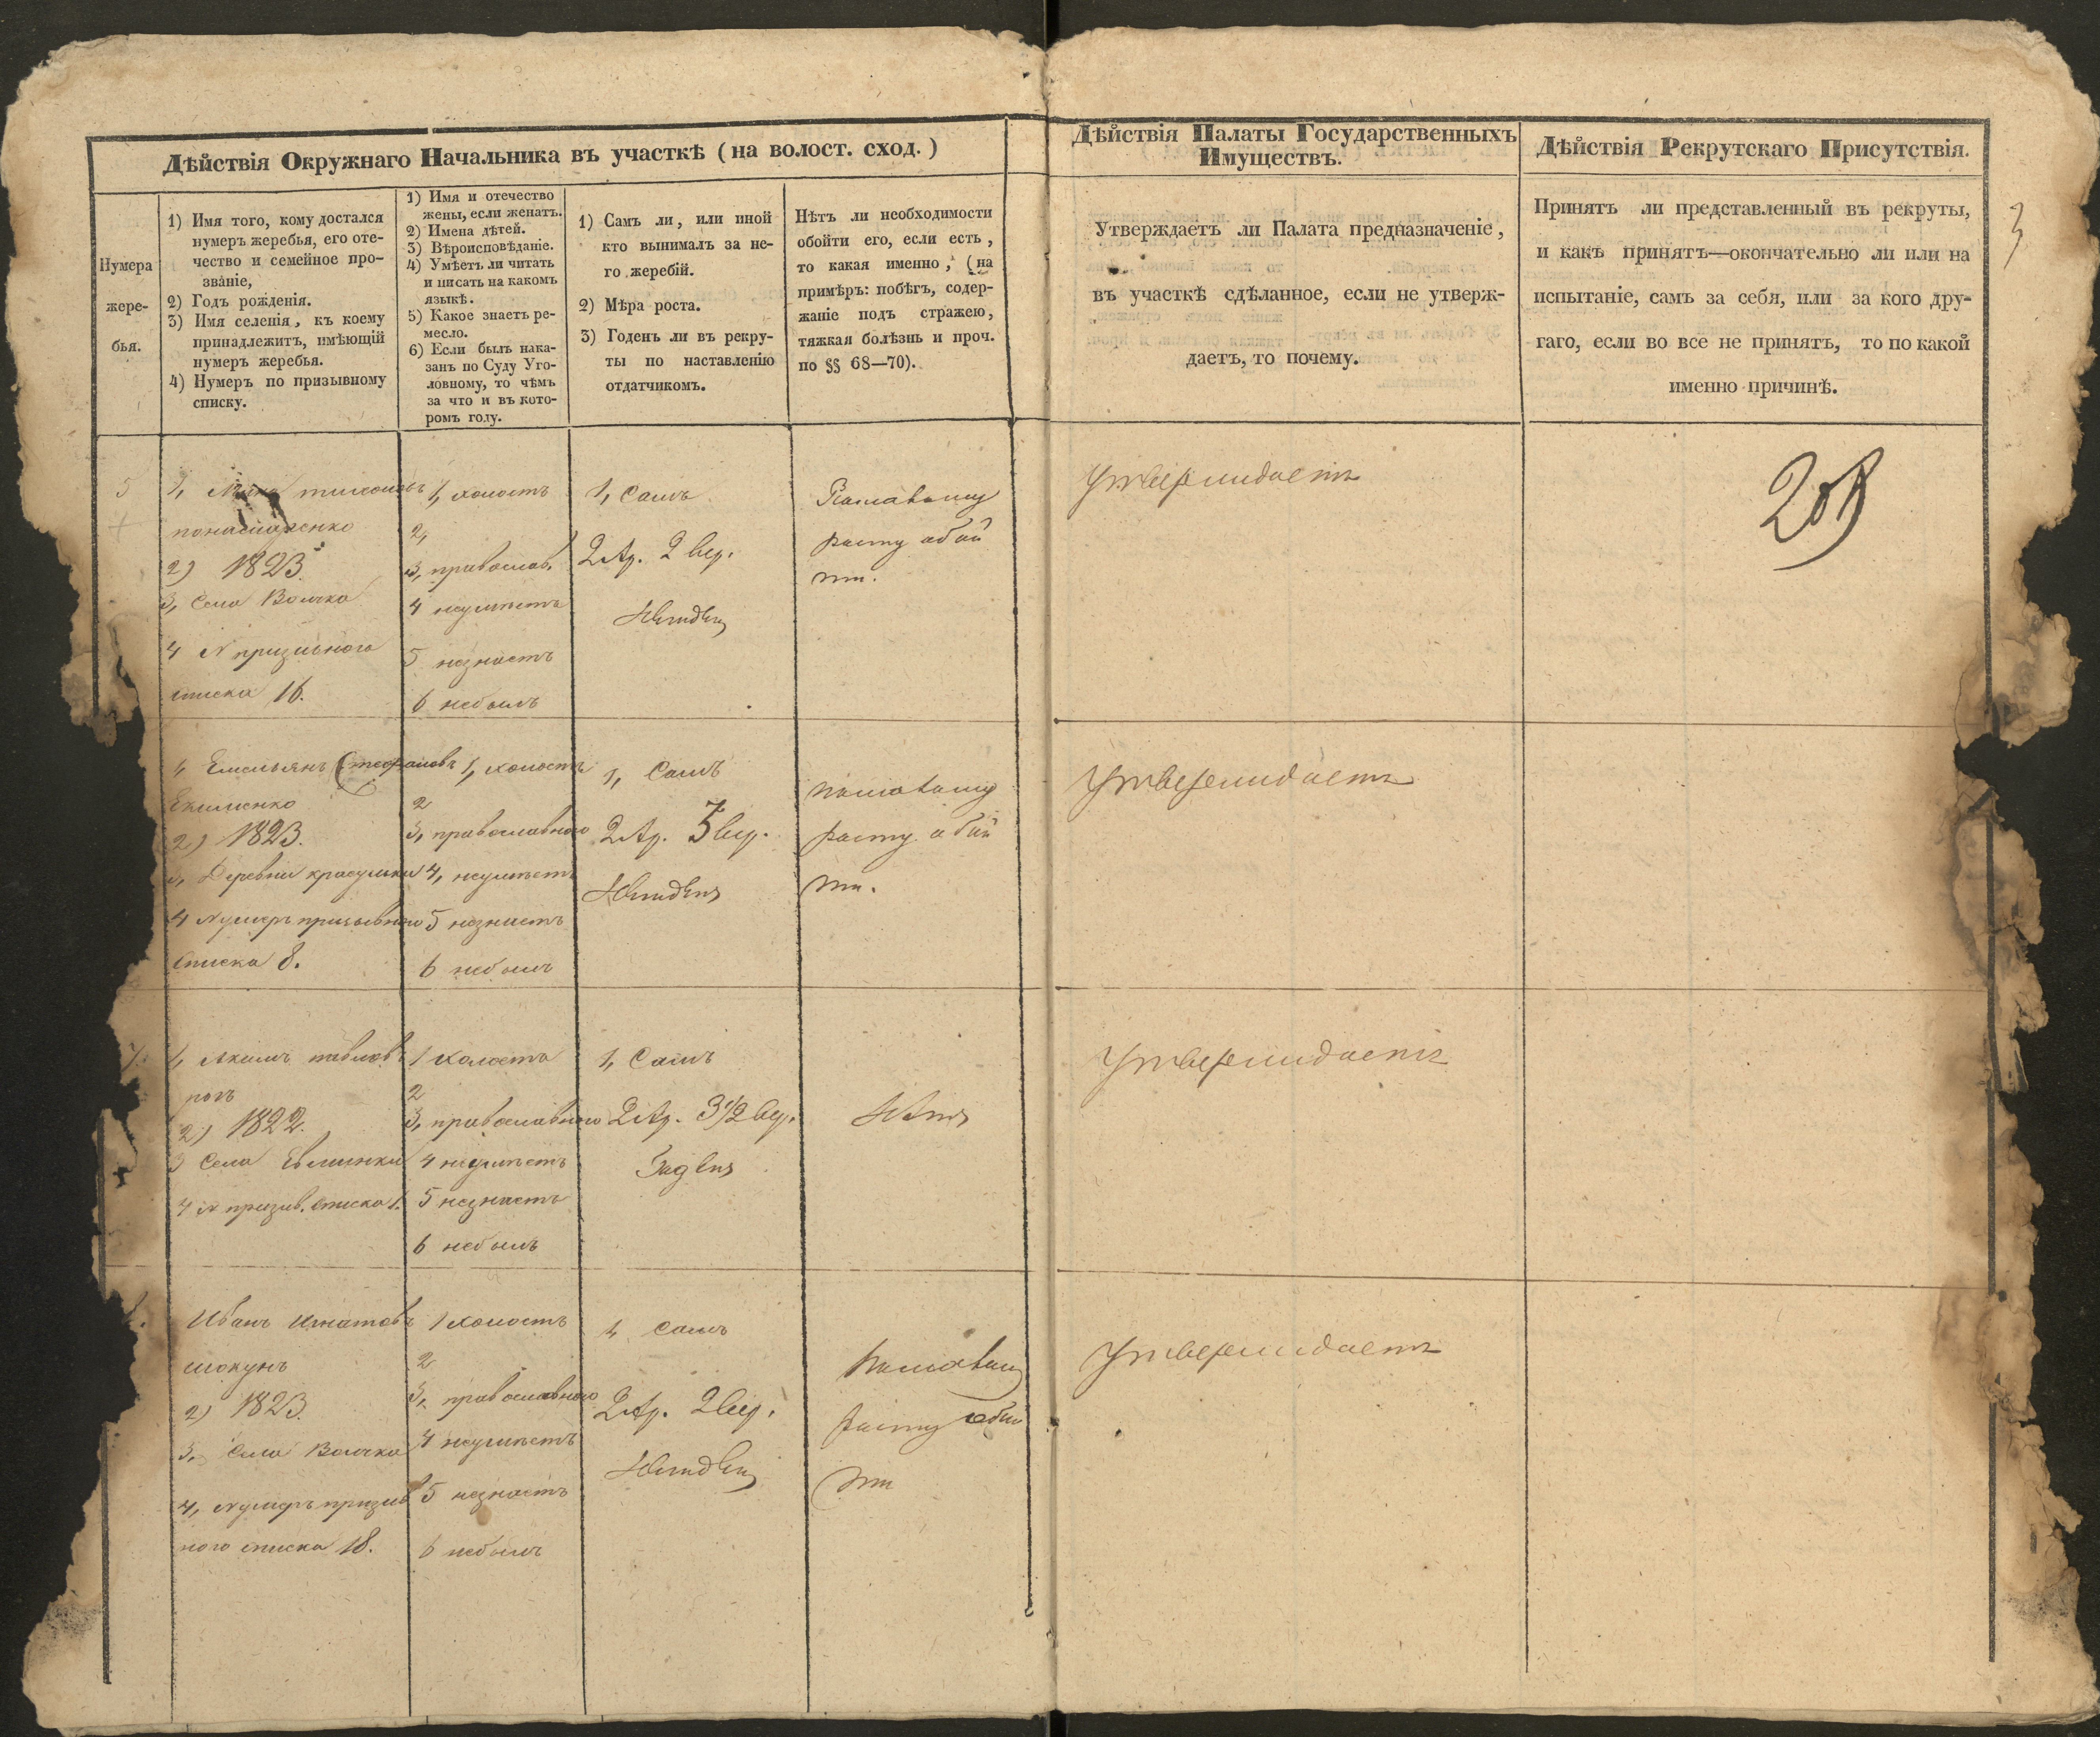 Дѣйствія Окружнаго Начальника въ участкѣ (на волост. сход.)
Нумера
жере-
бья.
1) Имя того, кому достался
нумеръ жеребья, его оте-
чество и семейное про-
званіе,
2) Годъ рожденія.
3) Имя селенія, къ коему
принадлежитъ, имѣющій
нумеръ жеребья.
4) Нумеръ по призывному
списку.
1) Имя и отечество
жены, если женатъ.
2) Имена дѣтей.
3) Вѣроисповѣданіе.
4) Умѣетъ ли читать
и писать на какомъ
языкѣ.
5) Какое знаетъ ре-
месло.
6) Если былъ нака-
занъ по Суду Уго-
ловному, то чѣмъ
за что и въ кото-
ромъ году.
1) Самъ ли, или иной
кто вынималъ за не-
го жеребій.
2) Мѣра роста.
3) Годенъ ли въ рекру-
ты по наставленію
отдатчикомъ.
Нѣтъ ли необходимости
обойти его, если есть,
то какая именно, (на
примѣръ: побѣгъ, содер-
жаніе подъ стражею,
тяжкая болѣзнь и проч.
по §§ 68—70).
Дѣйствія Палаты Государственныхъ
Имуществъ.
Утверждаетъ ли Палата предназначеніе,
въ участкѣ сдѣланное, если не утверж-
даетъ, то почему.
Дѣйствія Рекрутскаго Присутствія.
Принятъ ли представленный въ рекруты,
и какъ принятъ—окончательно ли или на
испытаніе, самъ за себя, или за кого дру-
гаго, если во все не принятъ, то по какой
именно причинѣ.
3
5
1,
понамаренко
2) 1823.
3, Села Волчка
4 N призывного
списка 16.
1, холостъ
2,
3, православ.
4 неумѣетъ
5 незнаетъ
6 небылъ
1, Самъ
2 Ар. 2 вер.
Помалому
росту обой
ти.
Утверждаетъ
1, Емельянъ Стефановъ
Екименко
2) 1823.
3, Деревни
4 Нумеръ призывного
Списка 8.
1, холостъ
2
3, православного
4, неумѣетъ
5 незнаетъ
6 небылъ
1, Самъ
2 Ар. вер.
помалому
росту обой
ти.
Утверждаетъ
7.
1, Акимъ павловъ
рогъ
2) 1822.
3 Села Евминки
4 N призыв. списка 1.
1 холостъ
2
3, православного
4 неумѣетъ
5 незнаетъ
6 небылъ
1, Самъ
2 Ар. 3 1/2 вер.
Годенъ
Нѣтъ
Утверждаетъ
Иванъ Игнатовъ
шокунъ
2) 1823.
3, Села Волчка
4, Нумеръ призыв
ного списка 18.
1 холостъ
2
3, православного
4 неумѣетъ
5 незнаетъ
6 небылъ
1, самъ
2 Ар. 2 вер.
помалому
росту обой
ти
Утверждаетъ